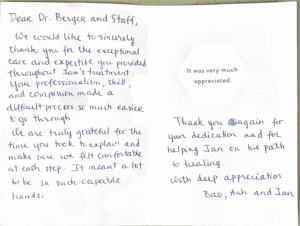 Dear Dr. Berger and Staff,
We would like to sincerely
thank you for the exceptional
care and expertise you provided
throughout Jan's treatment.
Your professionalism, skill,
and compassion made a
difficult process so much easier
to go through
We are truly grateful for the
time you took to explain and
make sure we felt comfortable
at each step. It meant a lot
to be in such capable
hands.
It was very much
appreciated.
Thank you again for
your dedication and for
helping Jan on his path
to healing.
With deep appreciation
Bao, Anh and Jan